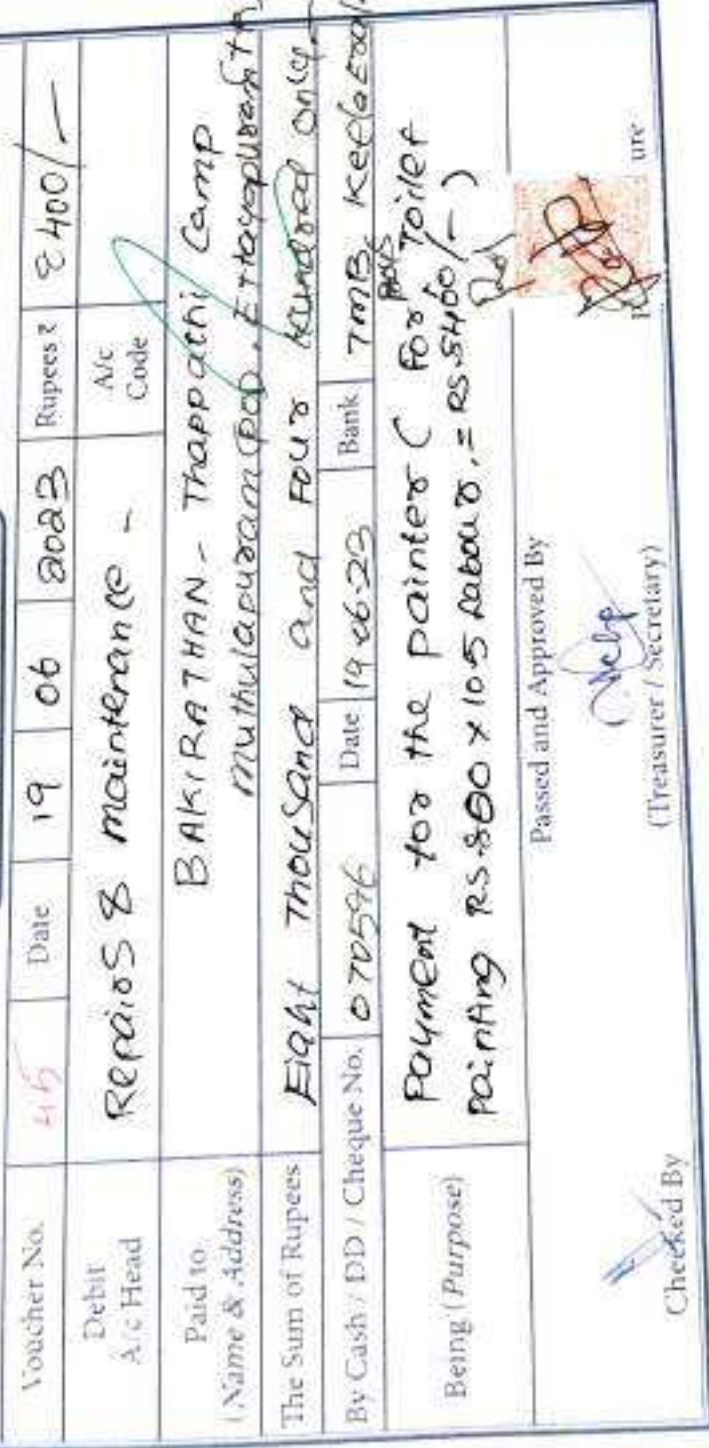 Voucher No. 45 Date 19 06 2023 Rupees ₹ 8400/-
Debit A/c Head Repairs & maintenance - A/c Code
Paid to (Name & Address) BAKIRATHAN - Thappathi Camp
Muthulapuram (po), Ettayapuram
The Sum of Rupees Eight Thousand and Four Hundred only
By Cash / DD / Cheque No. 070596 Date 19-06-23 Bank TMB
Being (Purpose) Payment for the painter ( For Toilet
painting RS.800 x 10.5 Labour. = RS.8400/- )
Passed and Approved By
Checked By (Treasurer / Secretary)